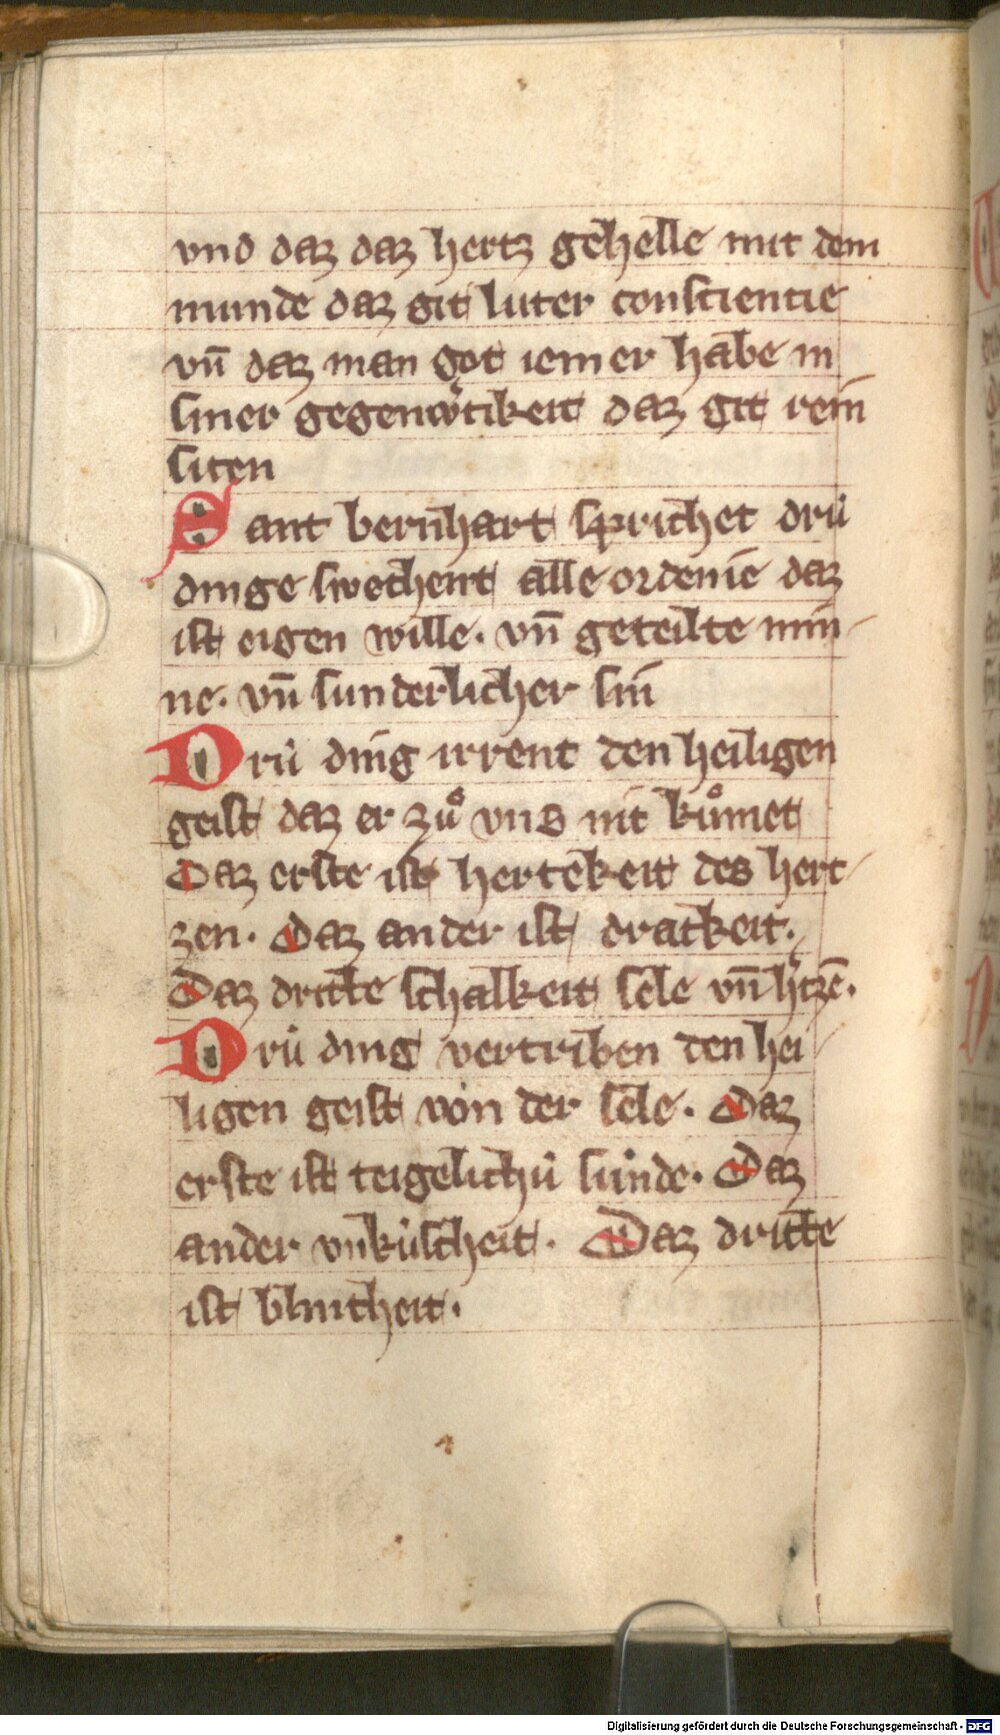 vnd daz daz hertz gehelle mit dem
munde daz git luter conscientie
vn̄ daz man got iemer habe in
siner gegenw̓tikeit daz git rein
siten
Sant bernhart sprichet drú
dinge swechent alle ordenie daz
ist eigen wille. vn̄ geteilte min
ne. vn̄ sunderlicher sin
Drú ding irrent den heiligen
geist daz er zuͦ vns nit kuͦmet
Daz erste ist hertekeit des hert
zen. Daz ander ist tratkeit.
Daz dritte schalkeit sele vn̄ h̓zē.
Drú ding vertriben den hei
ligen geist von der sele. Daz
erste ist teigelichú súnde. Daz
ander vnkúscheit. Daz dritte
ist blintheit.
Digitalisierung gefördert durch die Deutsche Forschungsgemeinschaft - DFG